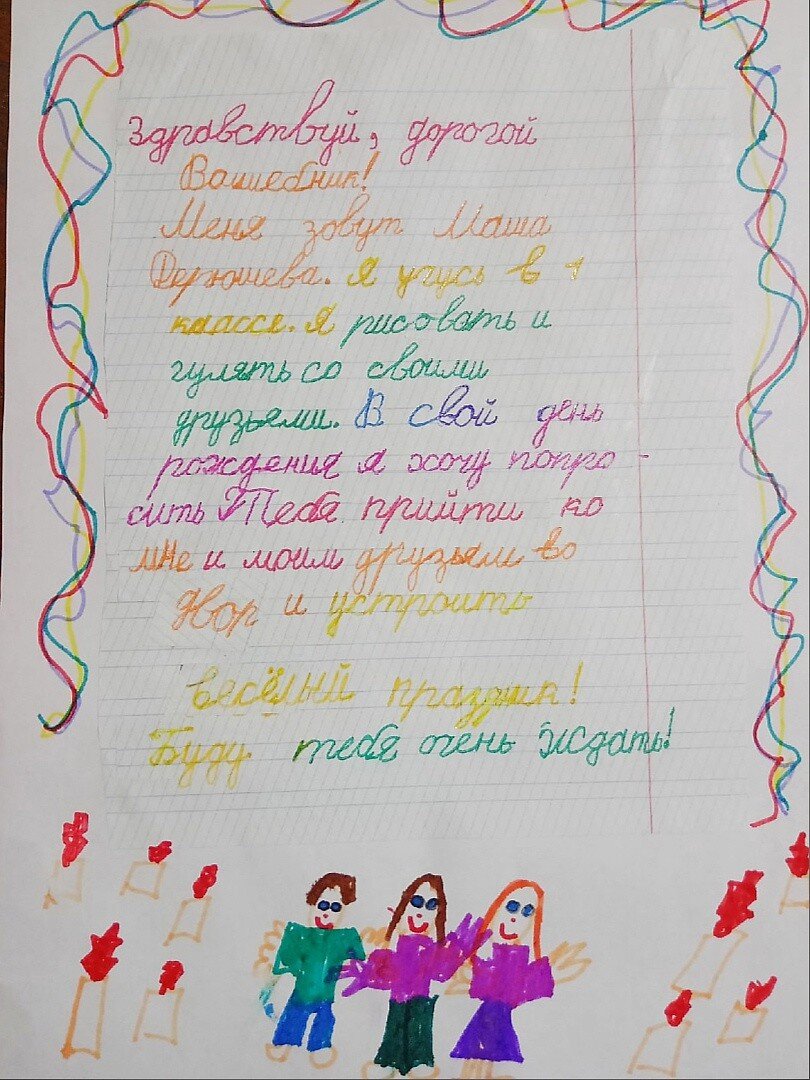 Здравствуй, дорогой
Вашебник!
Меня зовут Маша
Дерюшева. Я учусь в 1
классе. Я рисовать и
гулять со своими
друзьями. В свой день
рождения я хочу попро-
сить Тебя прийти ко
мне и моим друзьям во
двор и устроить
весёлый праздник!
Буду тебя очень ждать!